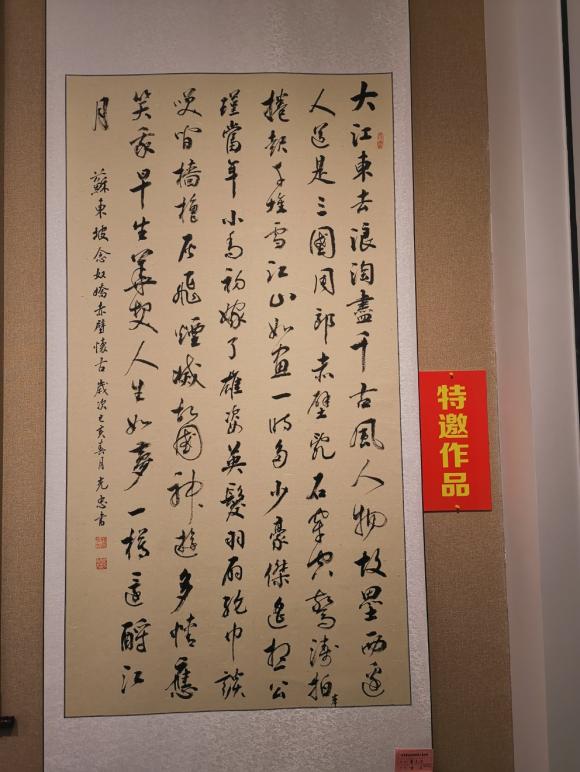 大江東去浪淘盡千古風人物故壘西邊
人道是三國周郎赤壁亂石穿空驚濤拍岸
捲起千堆雪江山如画一時多少豪傑遙想公
瑾當年小喬初嫁了雄姿英髮羽扇綸巾談
笑间檣櫓灰飛煙滅故國神遊多情應
笑我早生華髮人生如夢一樽還酹江
月
蘇東坡念奴嬌赤壁懷古 歲次己亥春月 光忠書
特邀作品